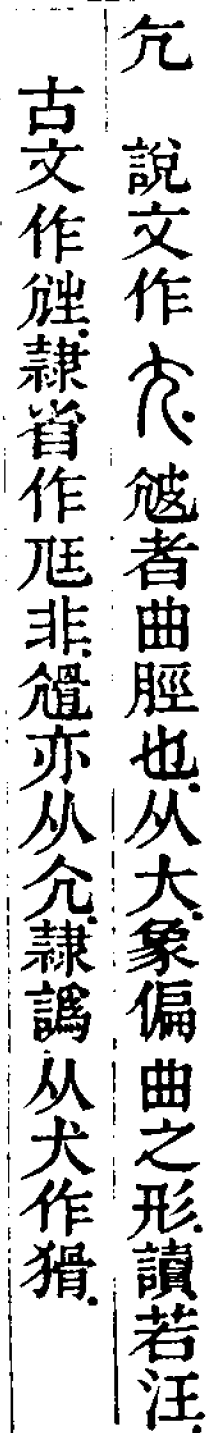 尣 說文作尢.㝿者曲脛也.从大.象偏曲之形.讀若汪.
古文作.隸省作尫非.尳亦从尣.隸譌从犬作猾.